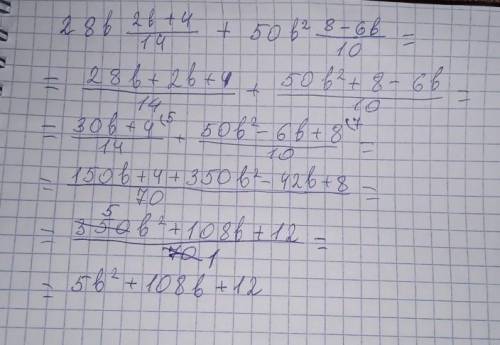 28b (2b+4)/14 + 50b² (8-6b)/10 =
= (28b+2b+4)/14 + (50b²+8-6b)/10 =
= (30b+4)/14 (5 + (50b²-6b+8)/10 (7 =
= (150b+4+350b²-42b+8)/70 =
= 5 (350b²+108b+12)/70 1 =
= 5b²+108b+12